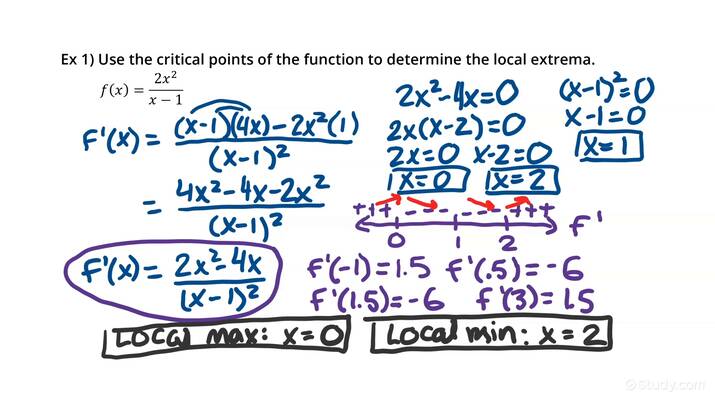 Ex 1) Use the critical points of the function to determine the local extrema.
f(x) = 2x²/(x − 1)
F'(x) = ((x-1)(4x) - 2x²(1))/(x-1)²
= (4x² - 4x - 2x²)/(x-1)²
F'(x) = (2x² - 4x)/(x-1)²
2x² - 4x = 0
2x(x-2) = 0
2x = 0 x-2 = 0
x = 0 x = 2
(x-1)² = 0
x-1 = 0
x = 1
+++ --- --- +++ F'
0 1 2
F'(-1) = 1.5 F'(.5) = -6
F'(1.5) = -6 F'(3) = 1.5
Local max: x = 0 Local min: x = 2
Study.com